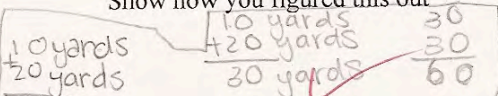 Show how you figured this out
10 yards
+20 yards
10 yards
+20 yards
30 yards
30
30
60